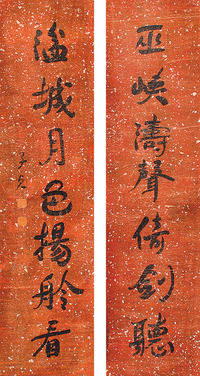 巫峽濤聲倚劍聽
湓城月色揚舲看
子貞